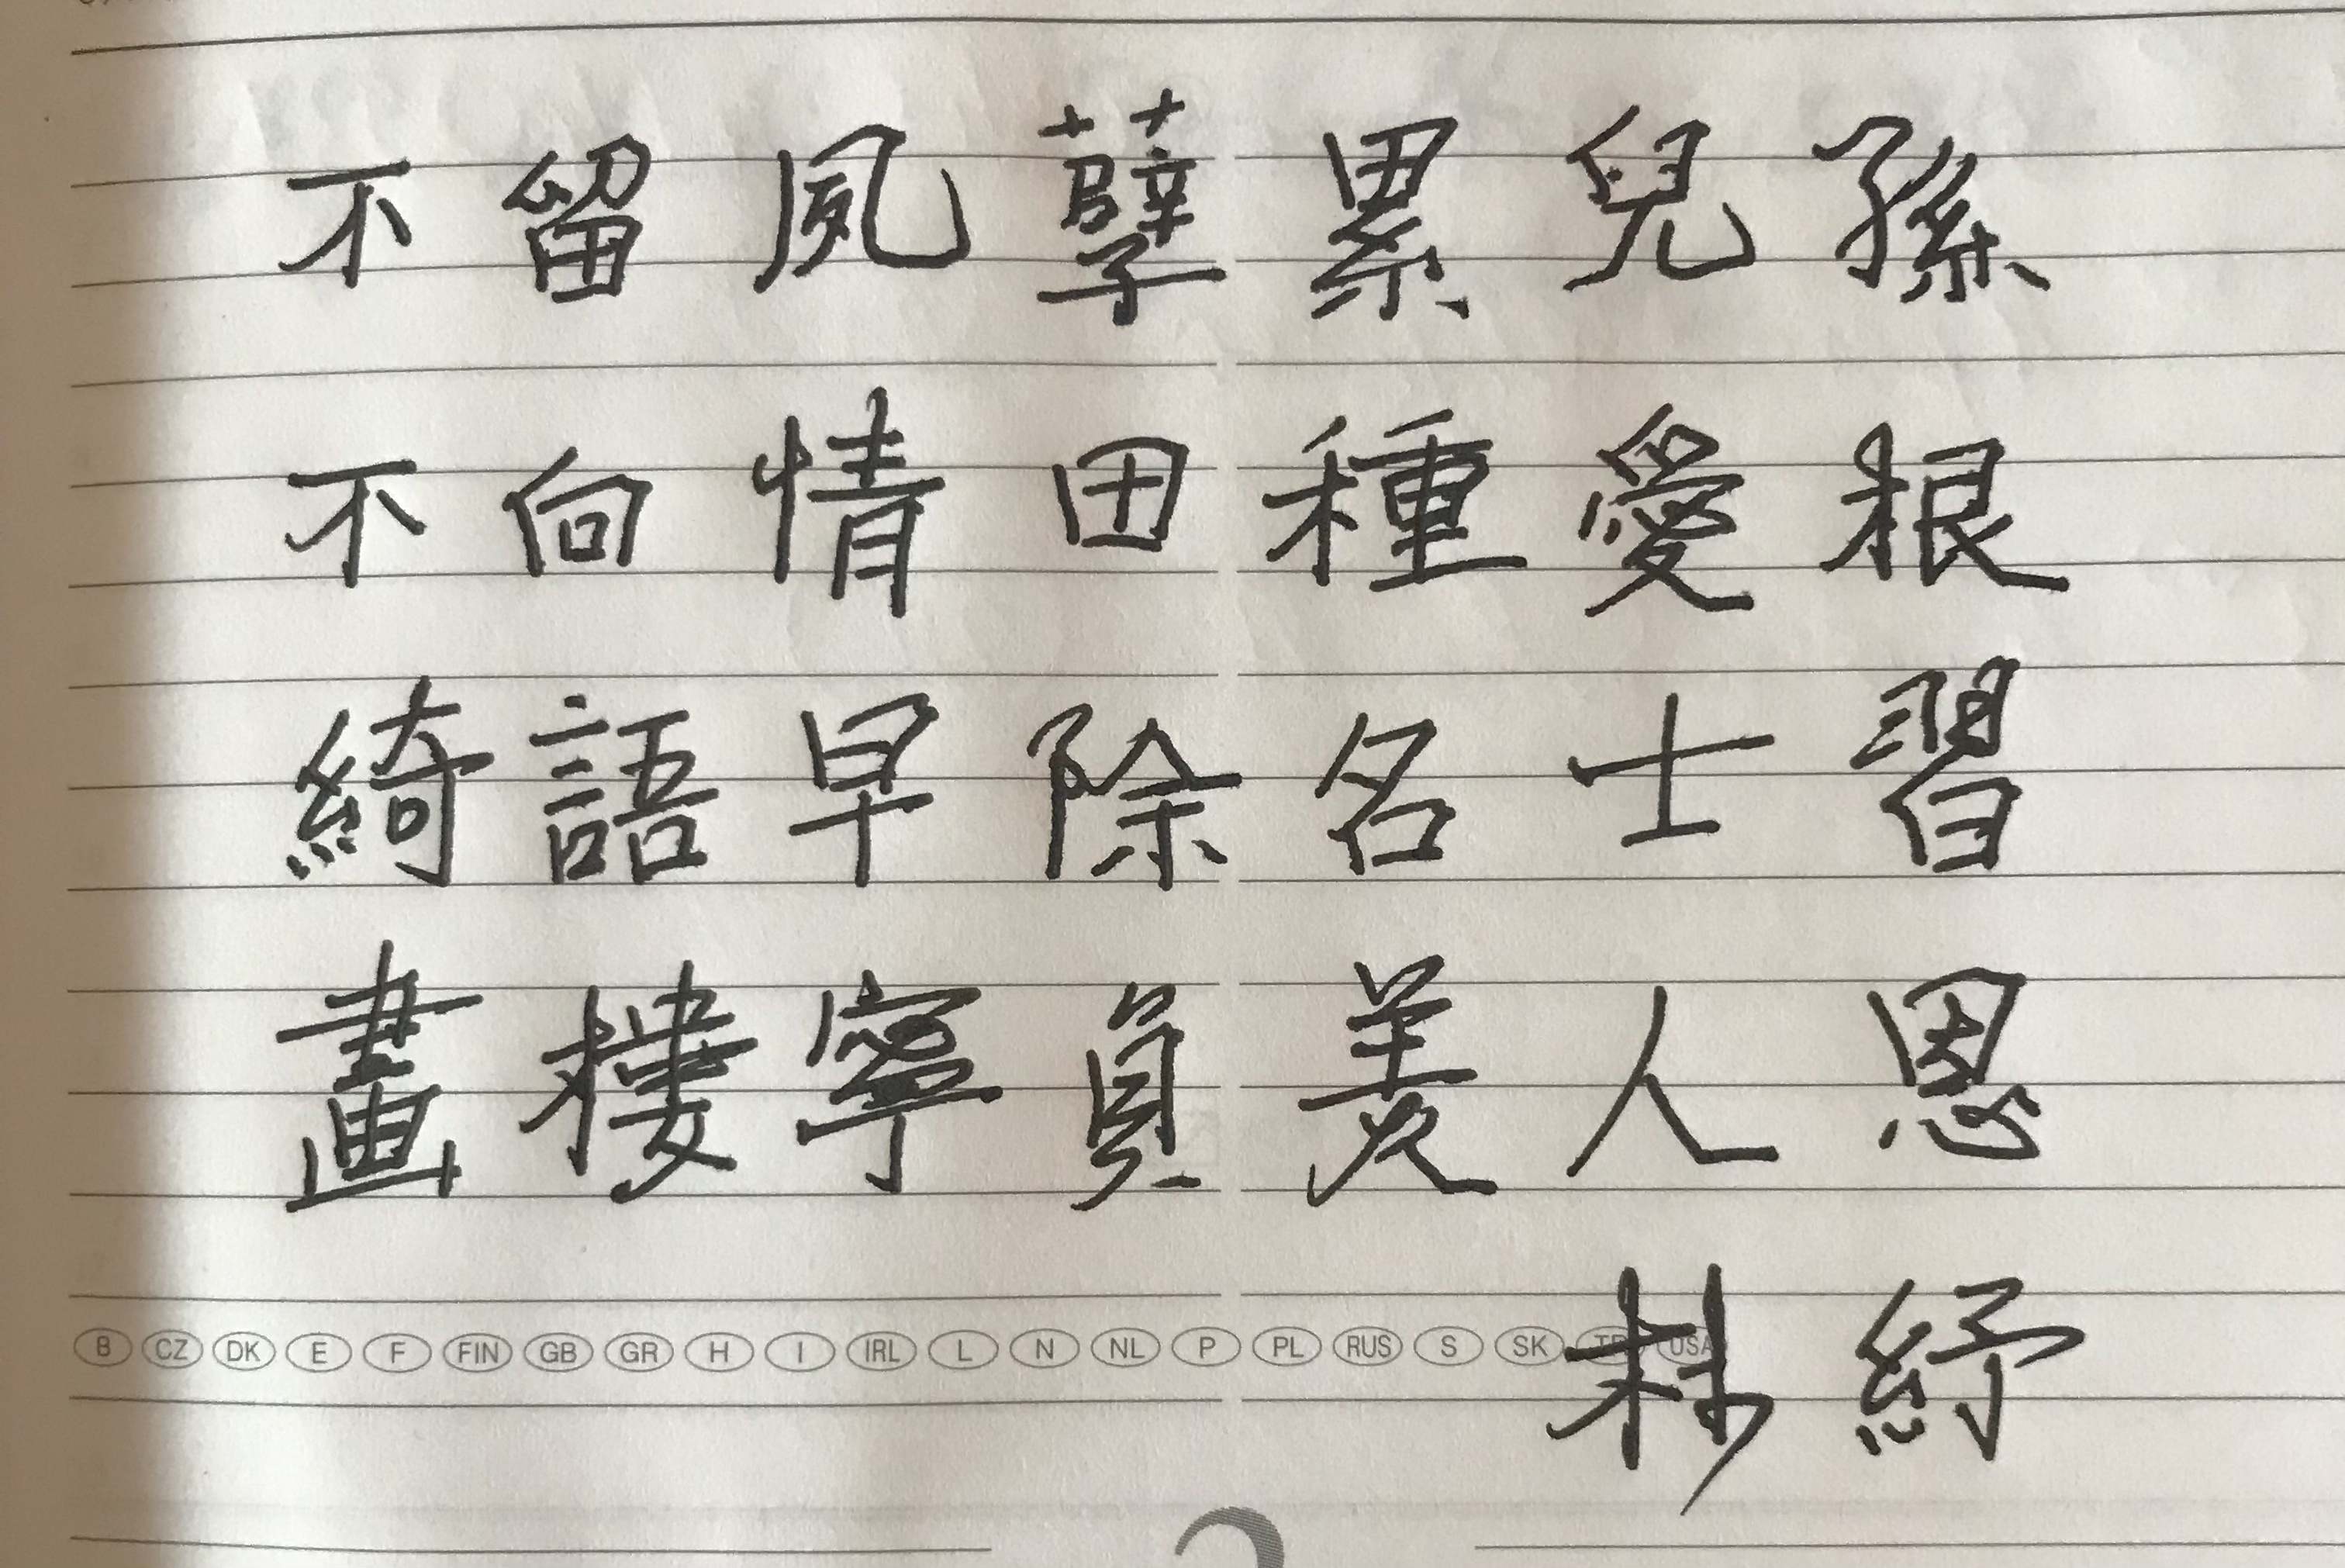 不留夙孽累兒孫
不向情田種愛根
綺語早除名士習
畫樓寧負美人恩
B CZ DK E F FIN GB GR H I IRL L N NL P PL RUS S SK TR USA
林紓
2